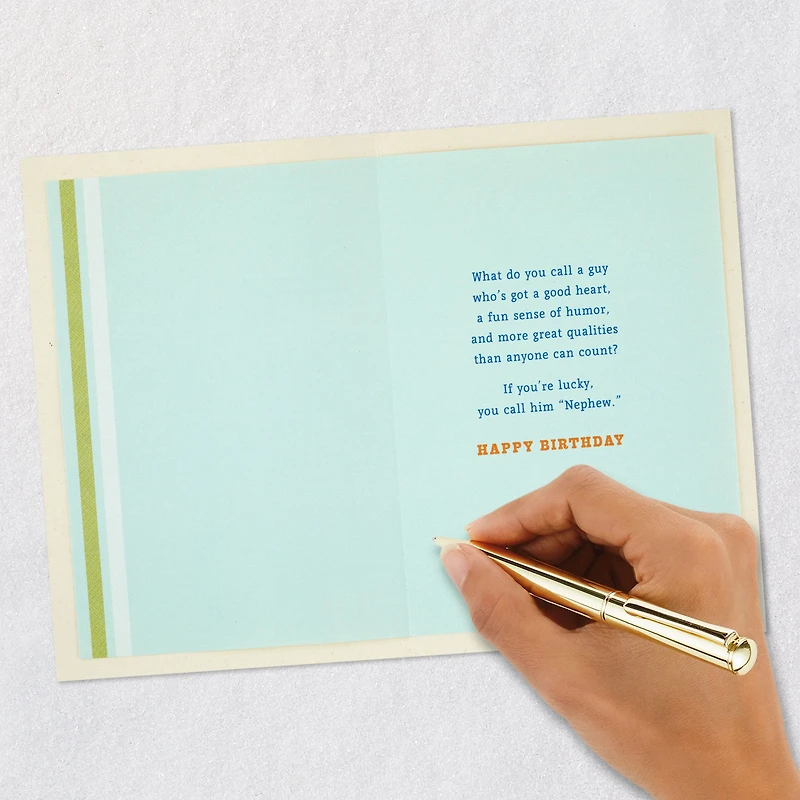 What do you call a guy
who's got a good heart,
a fun sense of humor,
and more great qualities
than anyone can count?
If you're lucky,
you call him “Nephew.”
HAPPY BIRTHDAY